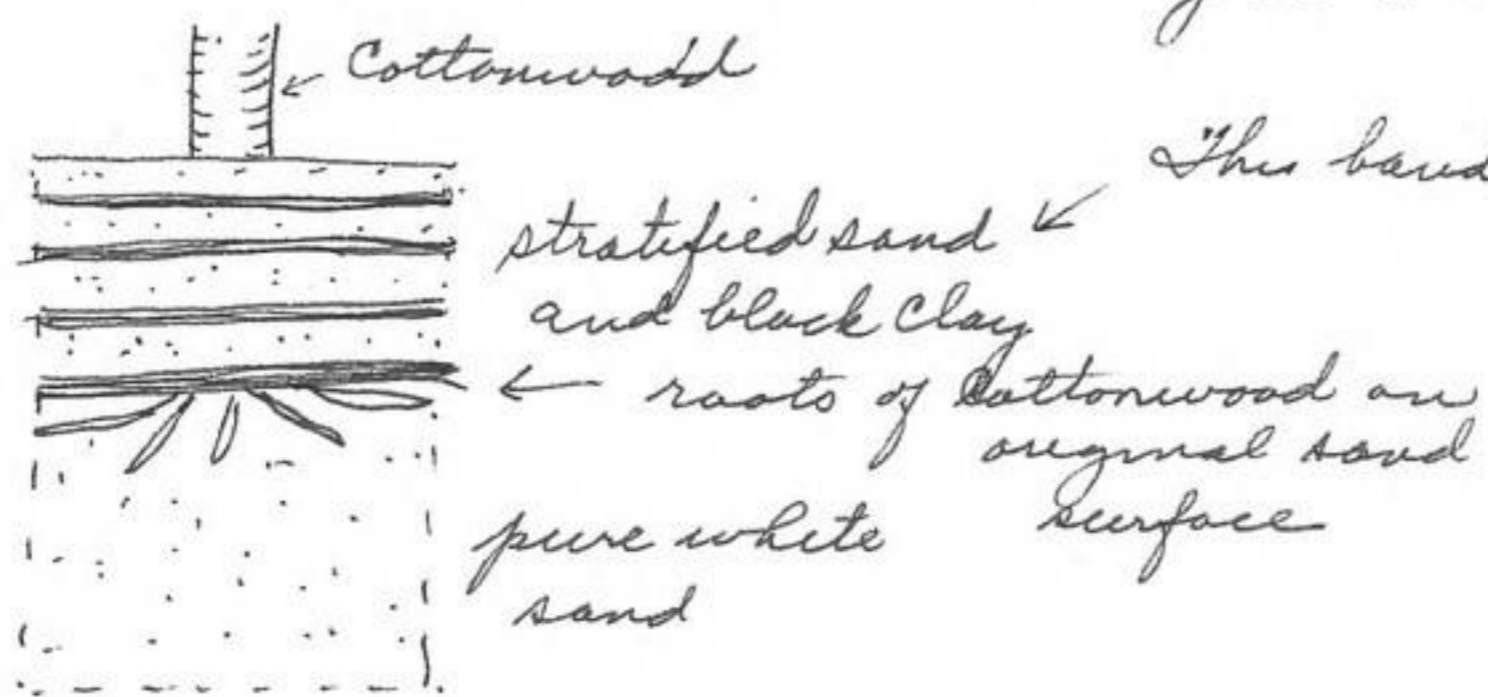 Cottonwood
This band
stratified sand
and black clay
roots of Cottonwood on
original sand
surface
pure white
sand